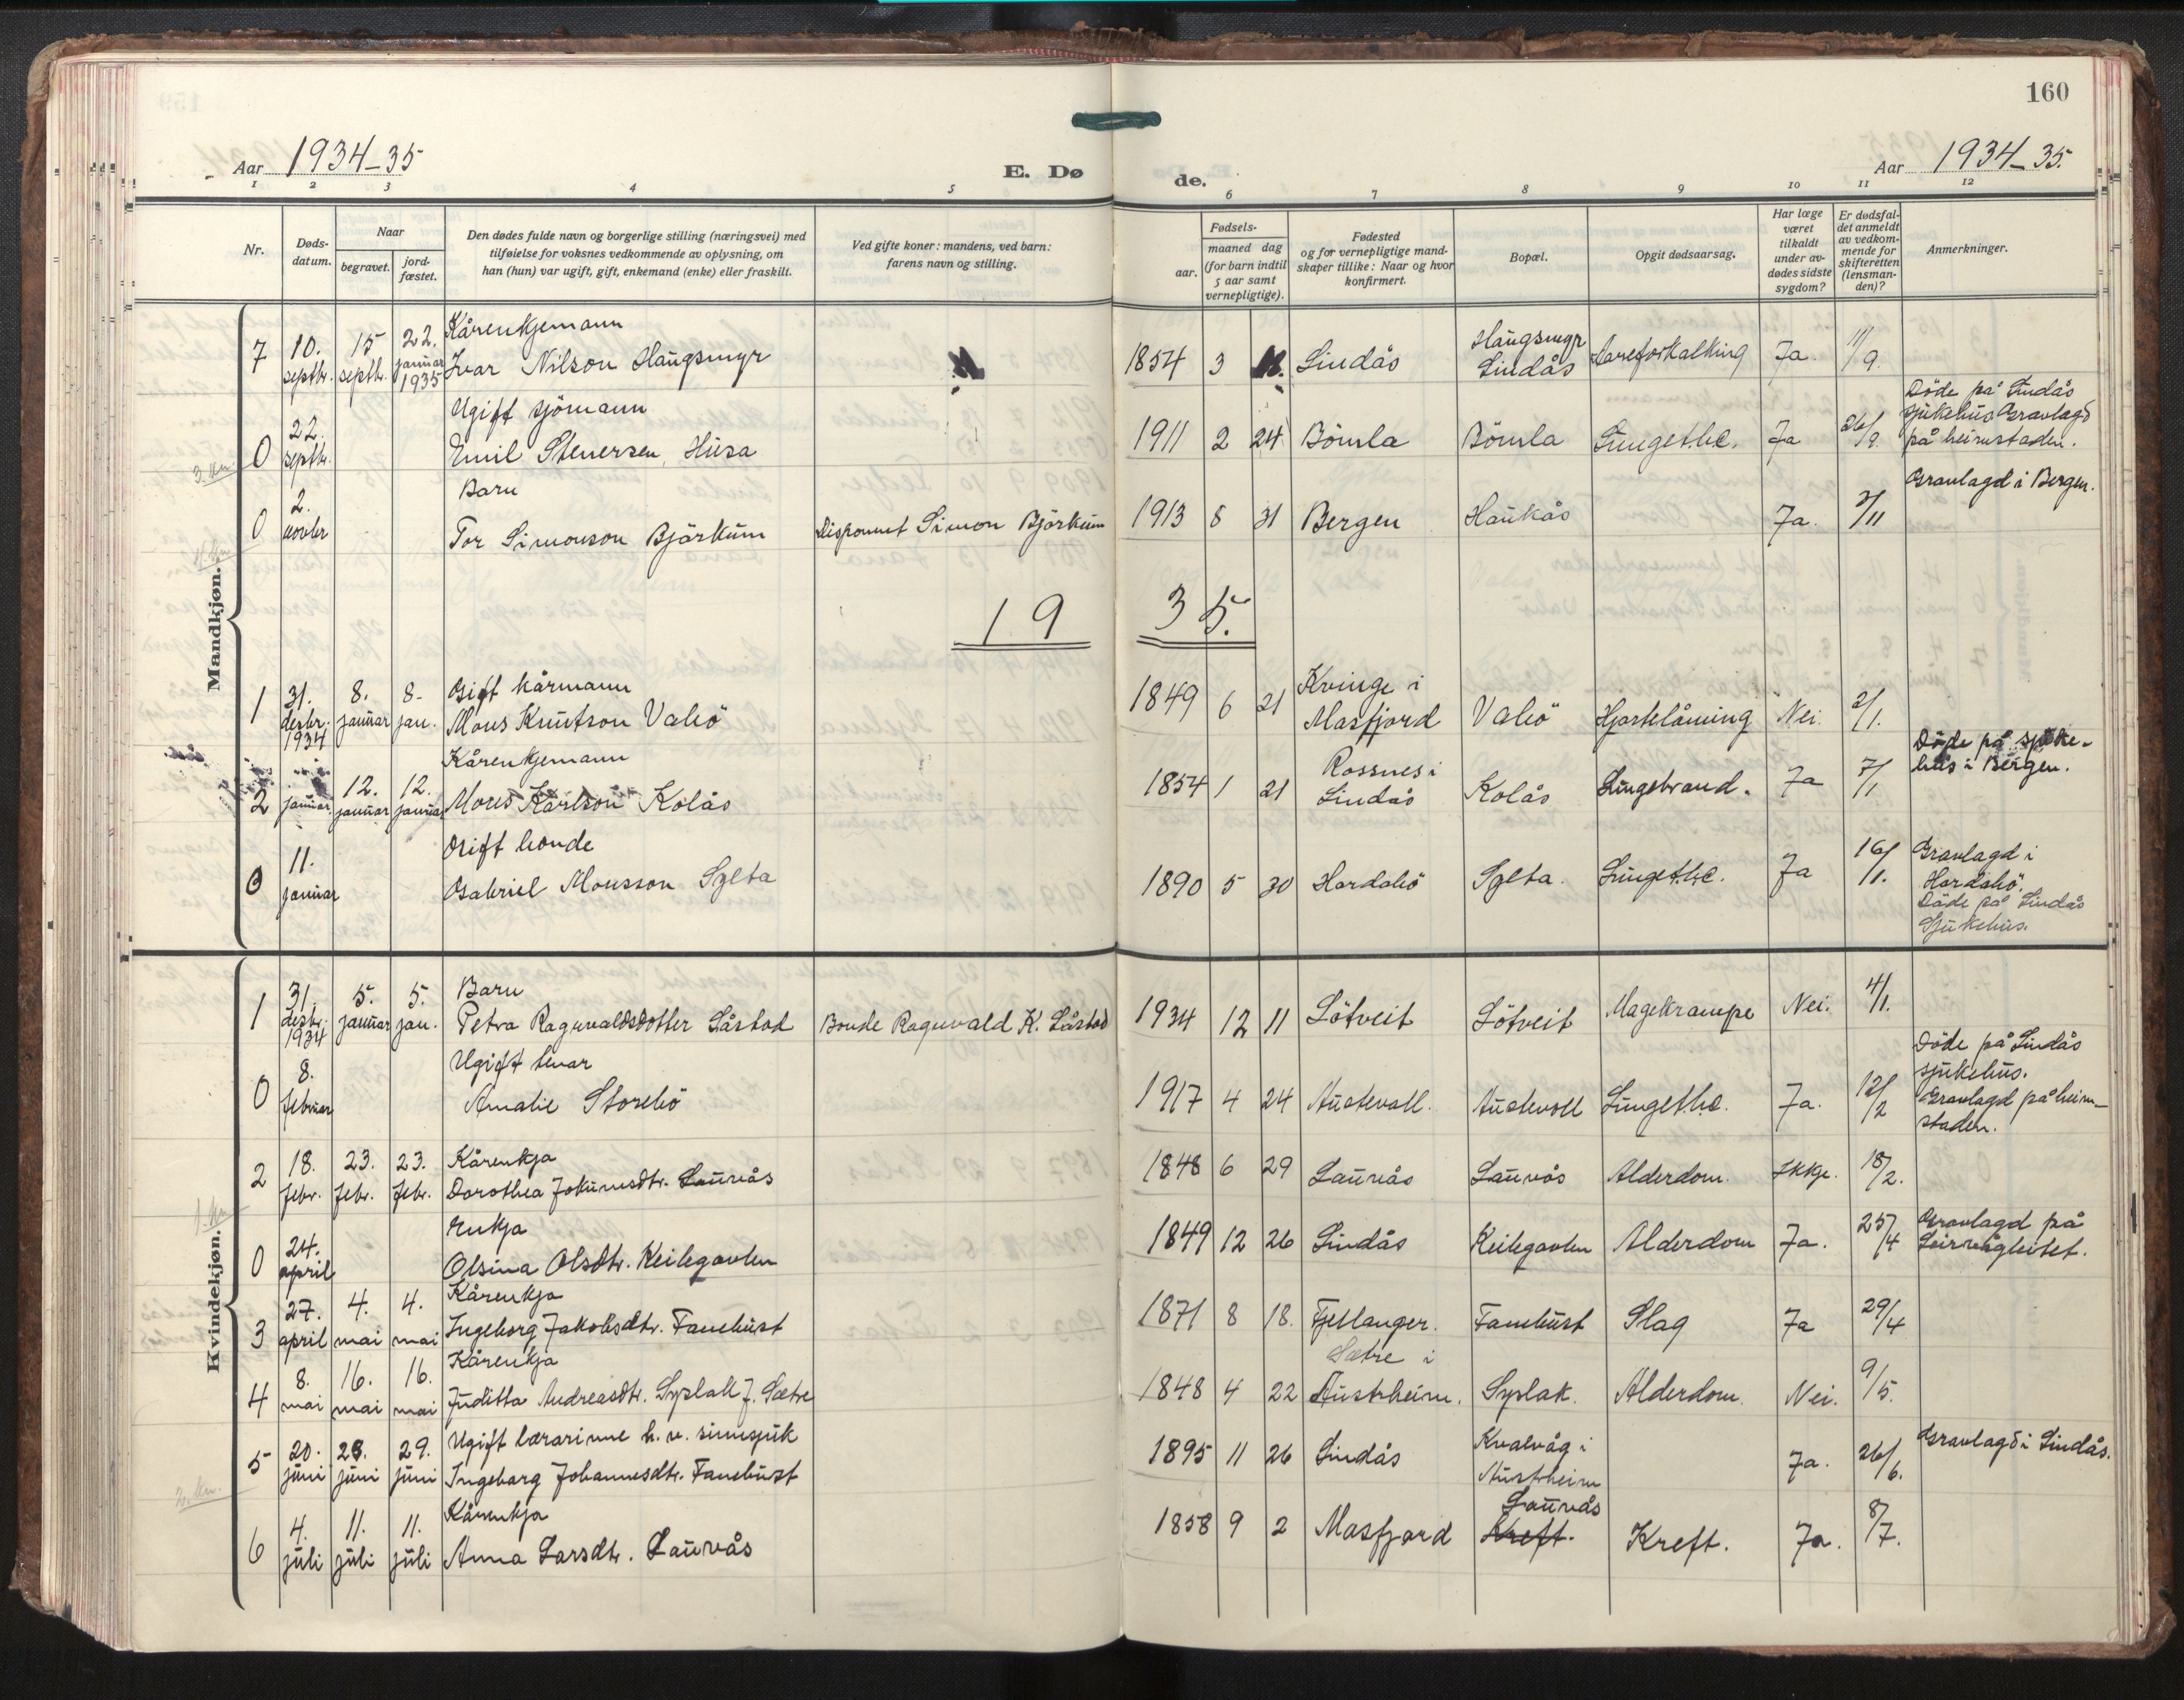 160
Aar 1934-35
E. Dø
de.
Aar 1934-35.
1 2 3 4 5 6 7 8 9 10 11 12
Nr.
Døds-
datum.
Naar
begravet.
jord-
fæstet.
Den dødes fulde navn og borgerlige stilling (næringsvei) med
tilføielse for voksnes vedkommende av oplysning, om
han (hun) var ugift, gift, enkemand (enke) eller fraskilt.
Ved gifte koner: mandens, ved barn:
farens navn og stilling.
Fødsels-
aar.
maaned dag
(for barn indtil
5 aar samt
vernepligtige).
Fødested
og for vernepligtige mand-
skaper tillike: Naar og hvor
konfirmert.
Bopæl.
Opgit dødsaarsag.
Har læge
været
tilkaldt
under av-
dødes sidste
sygdom?
Er dødsfal-
det anmeldt
av vedkom-
mende for
skifteretten
(lensman-
den)?
Anmerkninger.
Mandkjøn.
7 10. septbr. 15 septbr. 22. januar 1935
Kårenkjemann
Ivar Nilson Haugsmyr
1854 3 Lindås
Haugsmyr
Lindås
Aareforkalking Ja. 11/9.
0 22. septbr.
Ugift sjömann
Emil Stenersen Husa
1911 2 24 Bömla Bömla Lungetbc. Ja 26/9
Döde på Lindås
sjukehus Gravlagd
på heimstaden.
0 2. novbr
Barn
Tor Simonson Björkum
Disponent Simon Björkum
1913 8 31 Bergen Haukås Ja. 3/11
Gravlagd i Bergen.
19 35.
1 31. desbr. 1934 8. januar 8. jan.
Gift kårmann
Mons Knutson Valiö
1849 6 21
Kvinge i
Masfjord
Valiö Hjartelåming Nei. 2/1.
2 januar. 12. januar 12. januar
Kårenkjemann
Mons Karlson Kolås
1854 1 21
Rossnes i
Lindås
Kolås Lungebrand. Ja 7/1
Döde på sjuke-
hus i Bergen.
0 11. januar
Gift bonde
Gabriel Monsson Sylta
1890 5 30 Hordabö Sylta. Lungetbc. Ja 16/1.
Gravlagd i
Hordabö.
Döde på Lindås
Sjukehus.
Kvindekjøn.
1 31. desbr. 1934 5. januar 5. jan.
Barn
Petra Ragnvaldsdotter Låstad
Bonde Ragnvald K. Låstad
1934 12 11 Lötveit Lötveit Magekrampe Nei. 4/1.
0 8. februar
Ugift tenar
Amalie Storebö
1917 4 24 Austevoll. Austevoll Lungetbc. Ja. 12/2
Döde på Lindås
sjukehus.
Gravlagd på heim-
staden.
2 18. febr. 23. febr. 23. febr.
Kårenkja
Dorothea Jokumsdtr. Laurås
1848 6 29 Laurås Laurås Alderdom. Ikkje. 18/2.
0 24. april
Enkja
Olsina Olsdtr. Keilegavlen
1849 12 26 Lindås Keilegavlen Alderdom Ja. 25/4
Gravlagd på
Leirvågleitet.
3 27. april 4. mai 4. mai
Kårenkja
Ingeborg Jakobsdtr. Fanebust
1871 8 18. Fjellanger. Fanebust Slag Ja 29/4
4 8. mai 16. mai 16. mai
Kårenkja
Juditta Andreasdtr. Syslak f. Sætre
1848 4 22
Sætre i
Austrheim.
Syslak. Alderdom. Nei. 9/5.
5 20. juni 28. juni 29. juni
Ugift lærarinne h. v. sinnsjuk
Ingeborg Johannesdtr. Fanebust
1895 11 26 Lindås
Kvalvåg i
Austrheim
Ja. 26/6.
Gravlagd i Lindås.
6 4. juli 11. juli 11. juli
Kårenkja
Anna Larsdtr. Laurås
1858 9 2 Masfjord
Laurås
Kreft.
Kreft. Ja. 8/7.